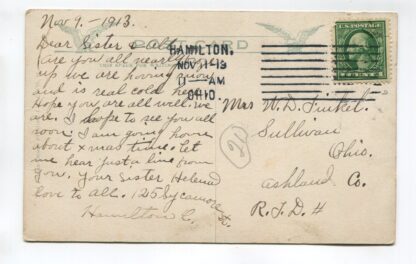 Nov 9.-1913.
Dear Sister & all
are you all nearly
up we are having snow
and is real cold here
Hope you are all well. we
are. I hope to see you all
soon. I am going home
about xmas time. let
me hear just a line from
you. your sister Helena
love to all. 125 Sycamore St.
Hamilton O.
POST CARD
HAMILTON,
NOV 11 '13
11-AM
OHIO.
U.S. POSTAGE
Mrs W. D.
Sullivan
Ohio.
Ashland Co.
R.F.D. #
20